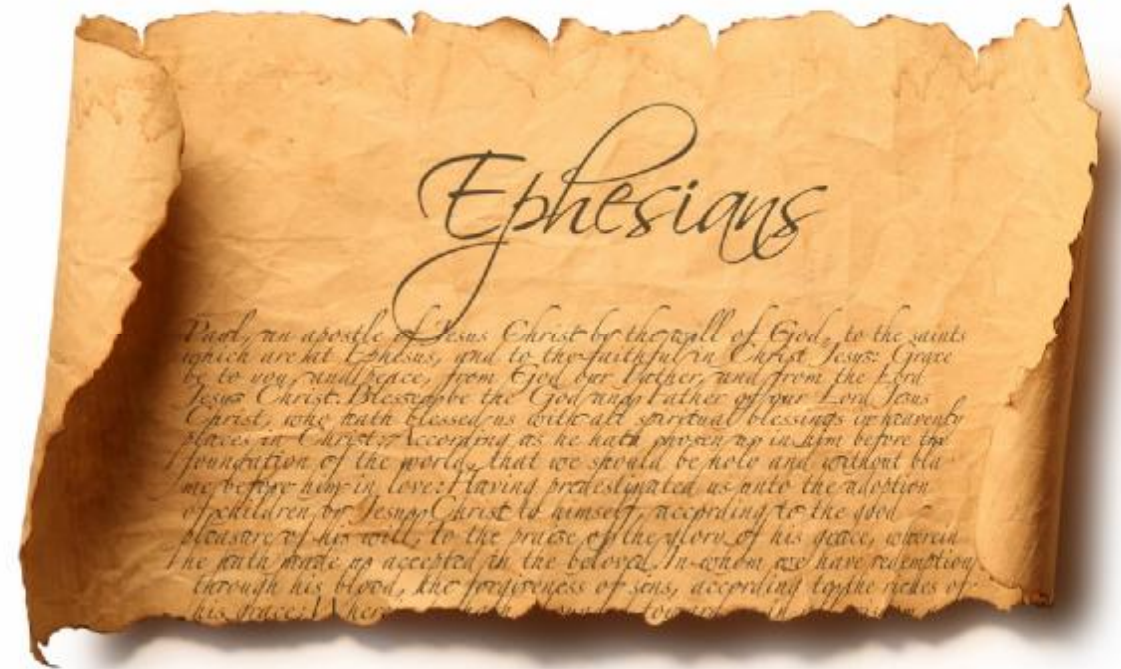 Ephesians
Paul, an apostle of Jesus Christ by the will of God, to the saints
which are at Ephesus, and to the faithful in Christ Jesus: Grace
be to you, and peace, from God our Father, and from the Lord
Jesus Christ. Blessed be the God and Father of our Lord Jesus
Christ, who hath blessed us with all spiritual blessings in heavenly
places in Christ: According as he hath chosen us in him before the
foundation of the world, that we should be holy and without bla
me before him in love: Having predestinated us unto the adoption
of children by Jesus Christ to himself, according to the good
pleasure of his will, to the praise of the glory of his grace, wherein
he hath made us accepted in the beloved. In whom we have redemption
through his blood, the forgiveness of sins, according to the riches of
his grace; Wherein hath toward